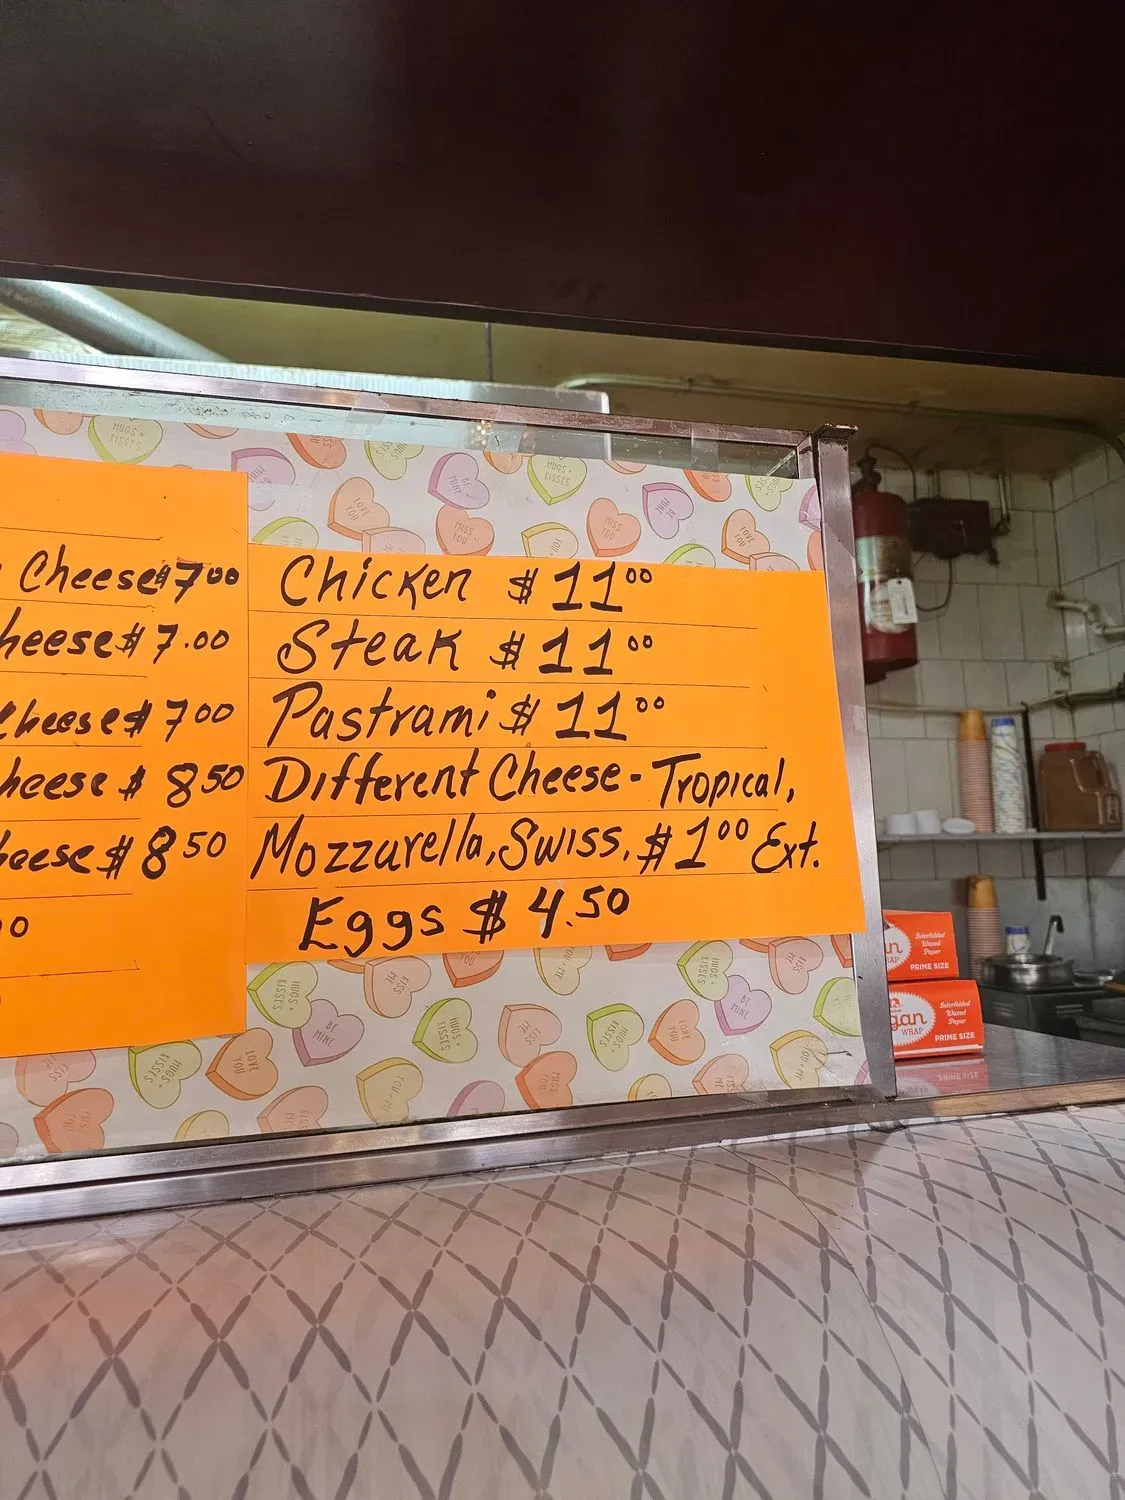 Cheese $7.00
$7.00
$7.00
$8.50
$8.50
Chicken $11.00
Steak $11.00
Pastrami $11.00
Different Cheese - Tropical,
Mozzarella, Swiss, $1.00 Ext.
Eggs $4.50
HUGS + KISSES
BE MINE
LOVE YOU
MISS YOU
KISS ME
YOU + ME
Interfolded
Waxed
Paper
PRIME SIZE
WRAP
Interfolded
Waxed
Paper
PRIME SIZE